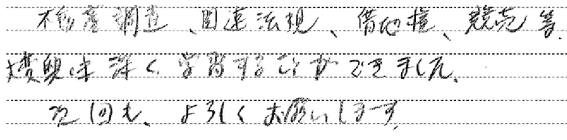 不動産調査、関連法規、借地権、競売等、
大変興味深く学習することができました。
次回も、よろしくお願いします。